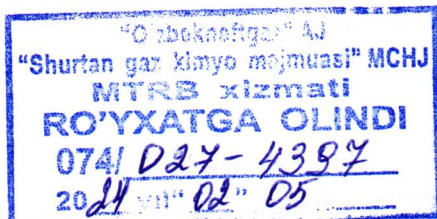 "O'zbekneftgaz" AJ
"Shurtan gaz kimyo majmuasi" MCHJ
MTRB xizmati
RO'YXATGA OLINDI
074/ 027-4397
2024 yil "02" 05